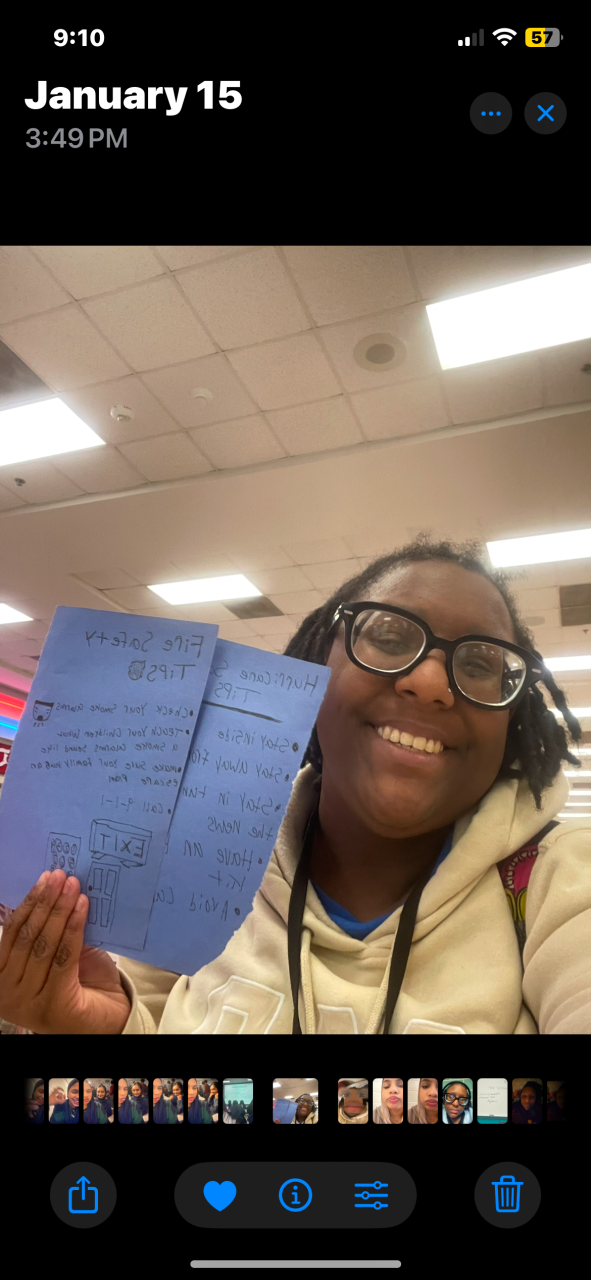 9:10
57
January 15
3:49 PM
Fire Safety
Tips
•Check Your Smoke Alarms
•Teach Your Children how
a Smoke alarms sound like
•make sure Your family has an
Plan
•Call 9-1-1
EXIT
Hurricane S
Tips
•Stay inside
•Stay away
•Stay in
the News
•Have an
Kit
•Avoid